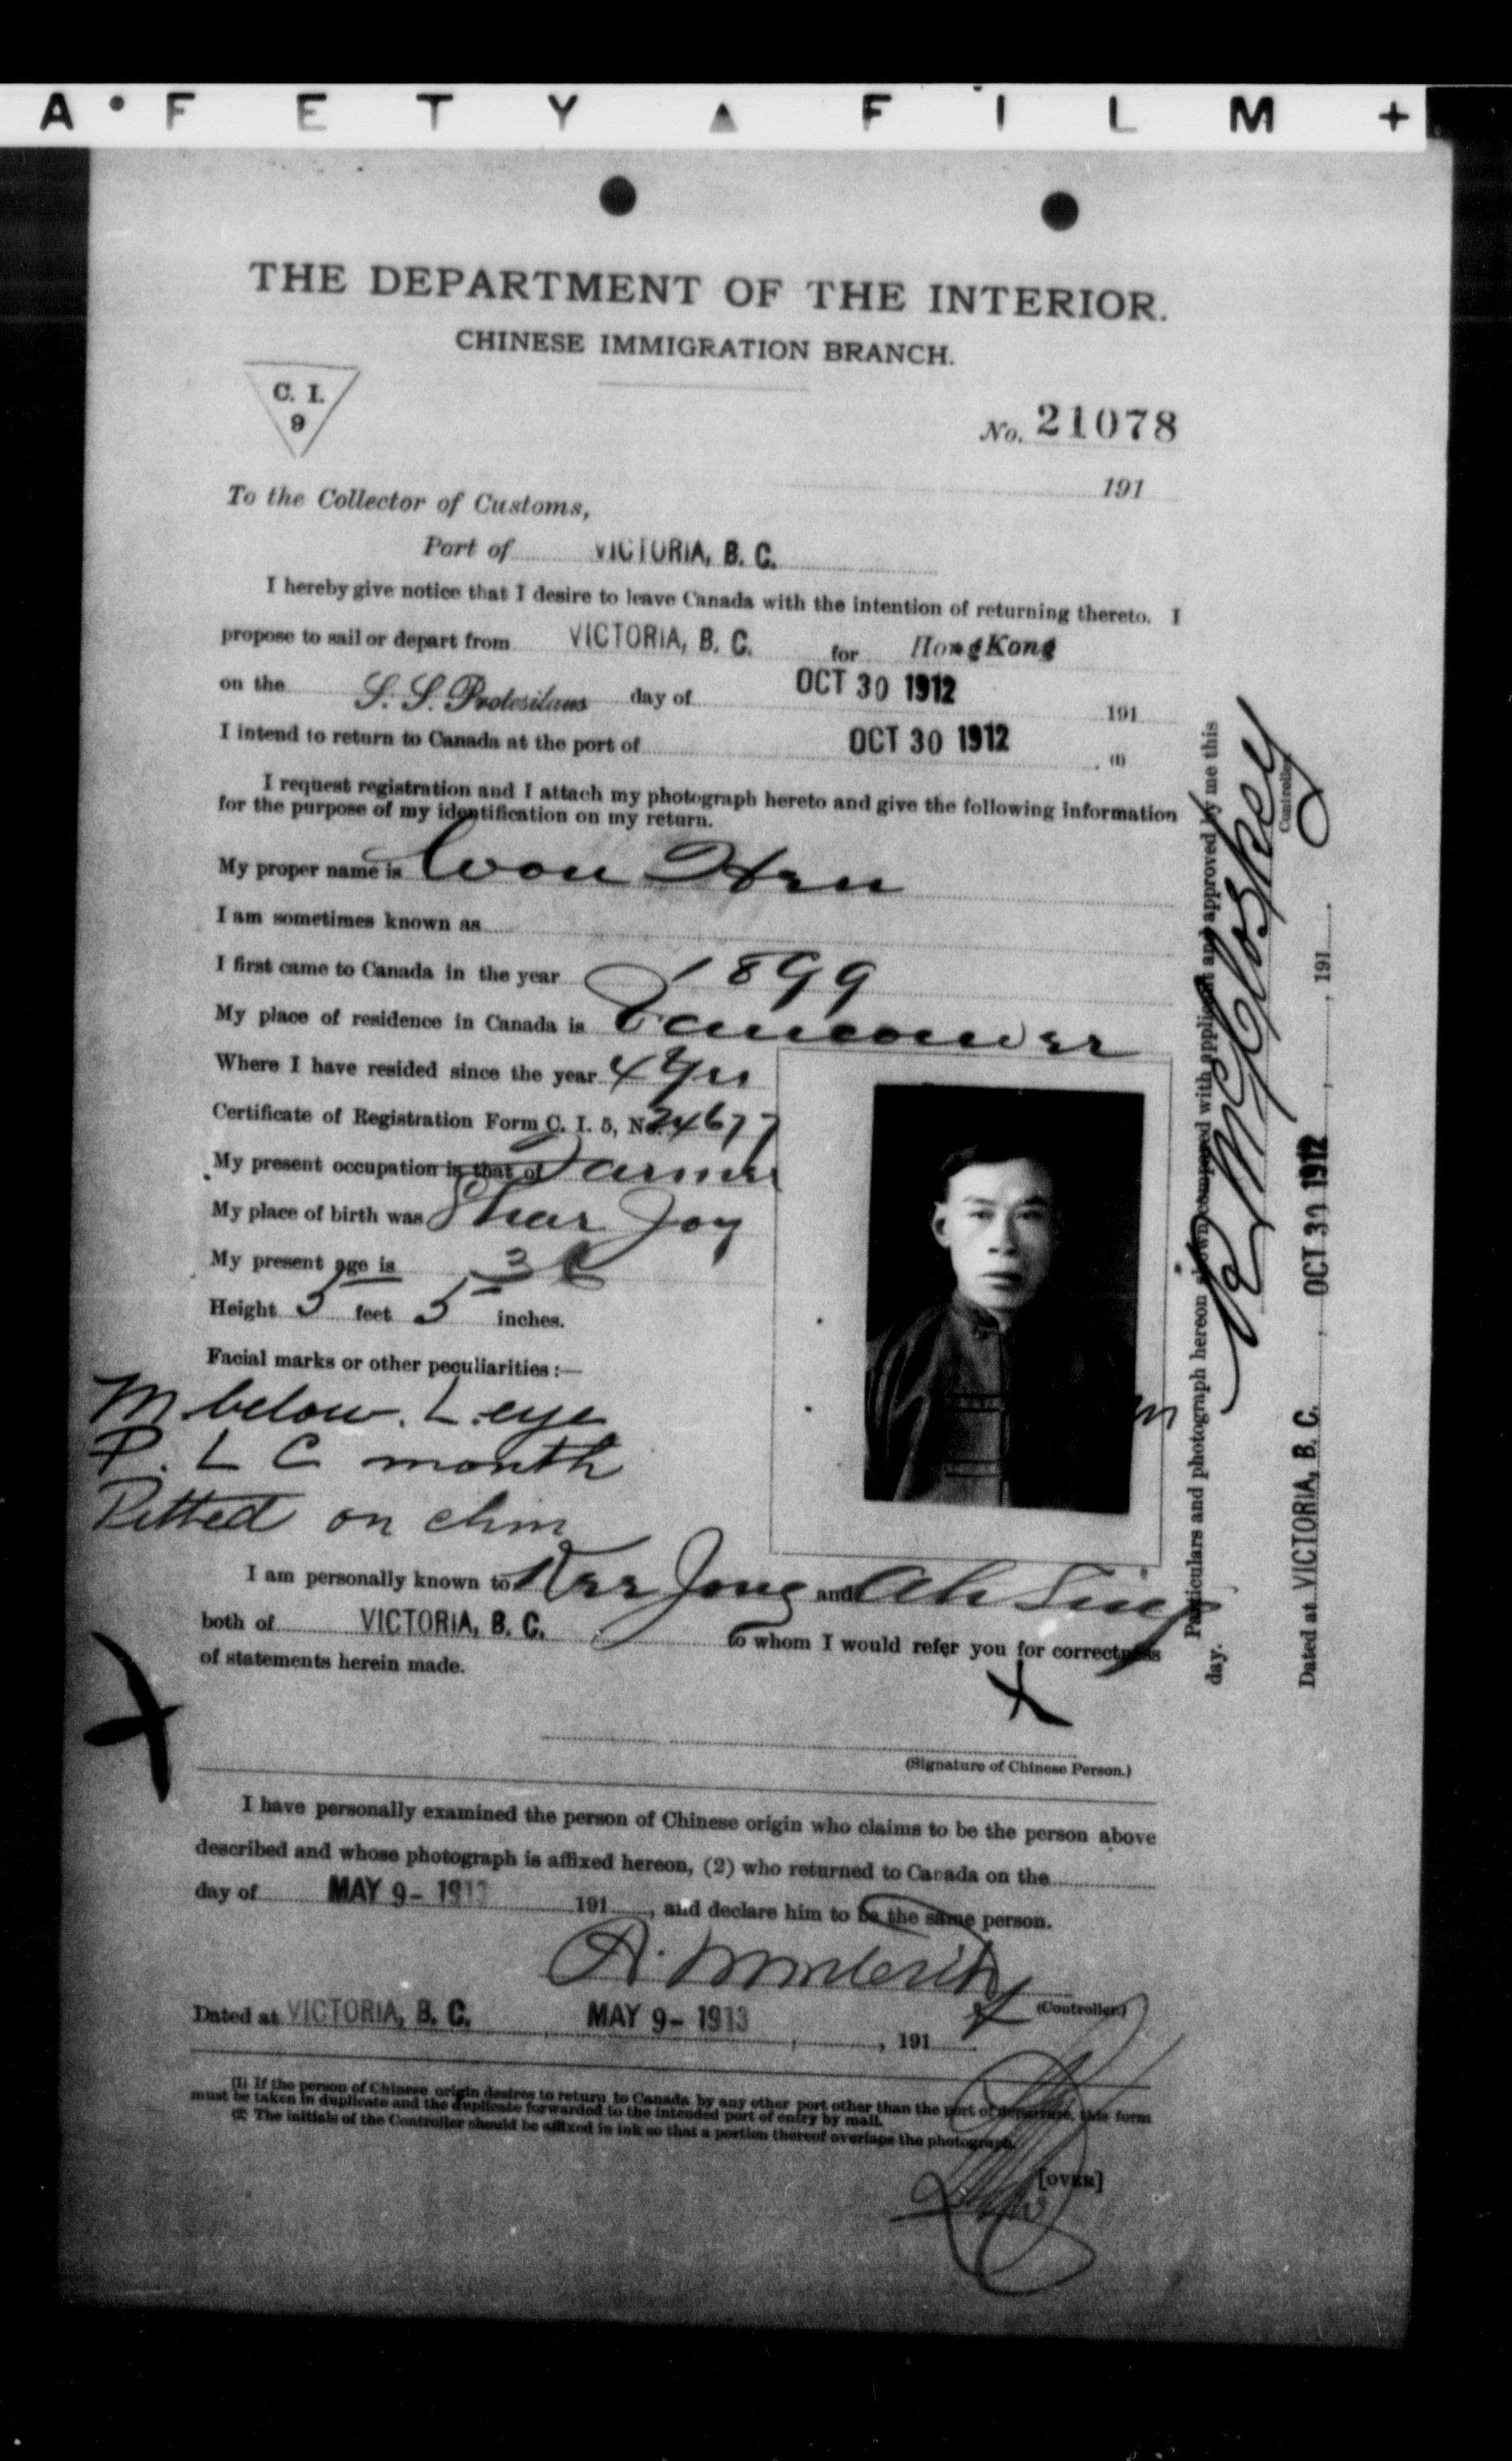 A • F E T Y ▲ F I L M +
THE DEPARTMENT OF THE INTERIOR.
CHINESE IMMIGRATION BRANCH.
C. I.
9
No. 21078
191
To the Collector of Customs,
Port of VICTORIA, B. C.
I hereby give notice that I desire to leave Canada with the intention of returning thereto. I
propose to sail or depart from VICTORIA, B. C. for HongKong
on the S. S. Protesilaus day of OCT 30 1912 191
I intend to return to Canada at the port of OCT 30 1912 . (1)
I request registration and I attach my photograph hereto and give the following information
for the purpose of my identification on my return.
My proper name is Won
I am sometimes known as
I first came to Canada in the year 1899
My place of residence in Canada is Vancouver
Where I have resided since the year 4 yrs
Certificate of Registration Form C. I. 5, No. 24677
My present occupation is that of Farmer
My place of birth was Shar Joy
My present age is
Height 5 feet 5 inches.
Facial marks or other peculiarities :—
M below L eye
P. L C mouth
Pitted on chin
I am personally known to Kee Jong and Ah Sing
both of VICTORIA, B. C. to whom I would refer you for correctness
of statements herein made.
X
(Signature of Chinese Person.)
I have personally examined the person of Chinese origin who claims to be the person above
described and whose photograph is affixed hereon, (2) who returned to Canada on the
day of MAY 9- 1913 191 , and declare him to be the same person.
(Controller.)
Dated at VICTORIA, B. C. , MAY 9- 1913 , 191
(1) If the person of Chinese origin desires to return to Canada by any other port other than the port of departure, this form
must be taken in duplicate and the duplicate forwarded to the intended port of entry by mail.
(2) The initials of the Controller should be affixed in ink so that a portion thereof overlaps the photograph.
[OVER]
Particulars and photograph hereon shown compared with applicant and approved by me this
day.
McCloskey
Controller
Dated at VICTORIA, B. C. , OCT 30 1912 , 191